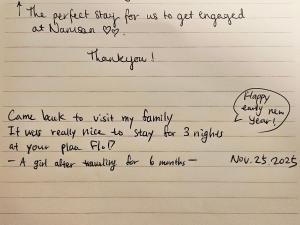 ↑ The perfect stay for us to get engaged
at Namsan ♡♡.
Thankyou!
Happy
early new
year!
Came back to visit my family
It was really nice to stay for 3 nights
at your place
- A girl after traveling for 6 months -
Nov. 25. 2025